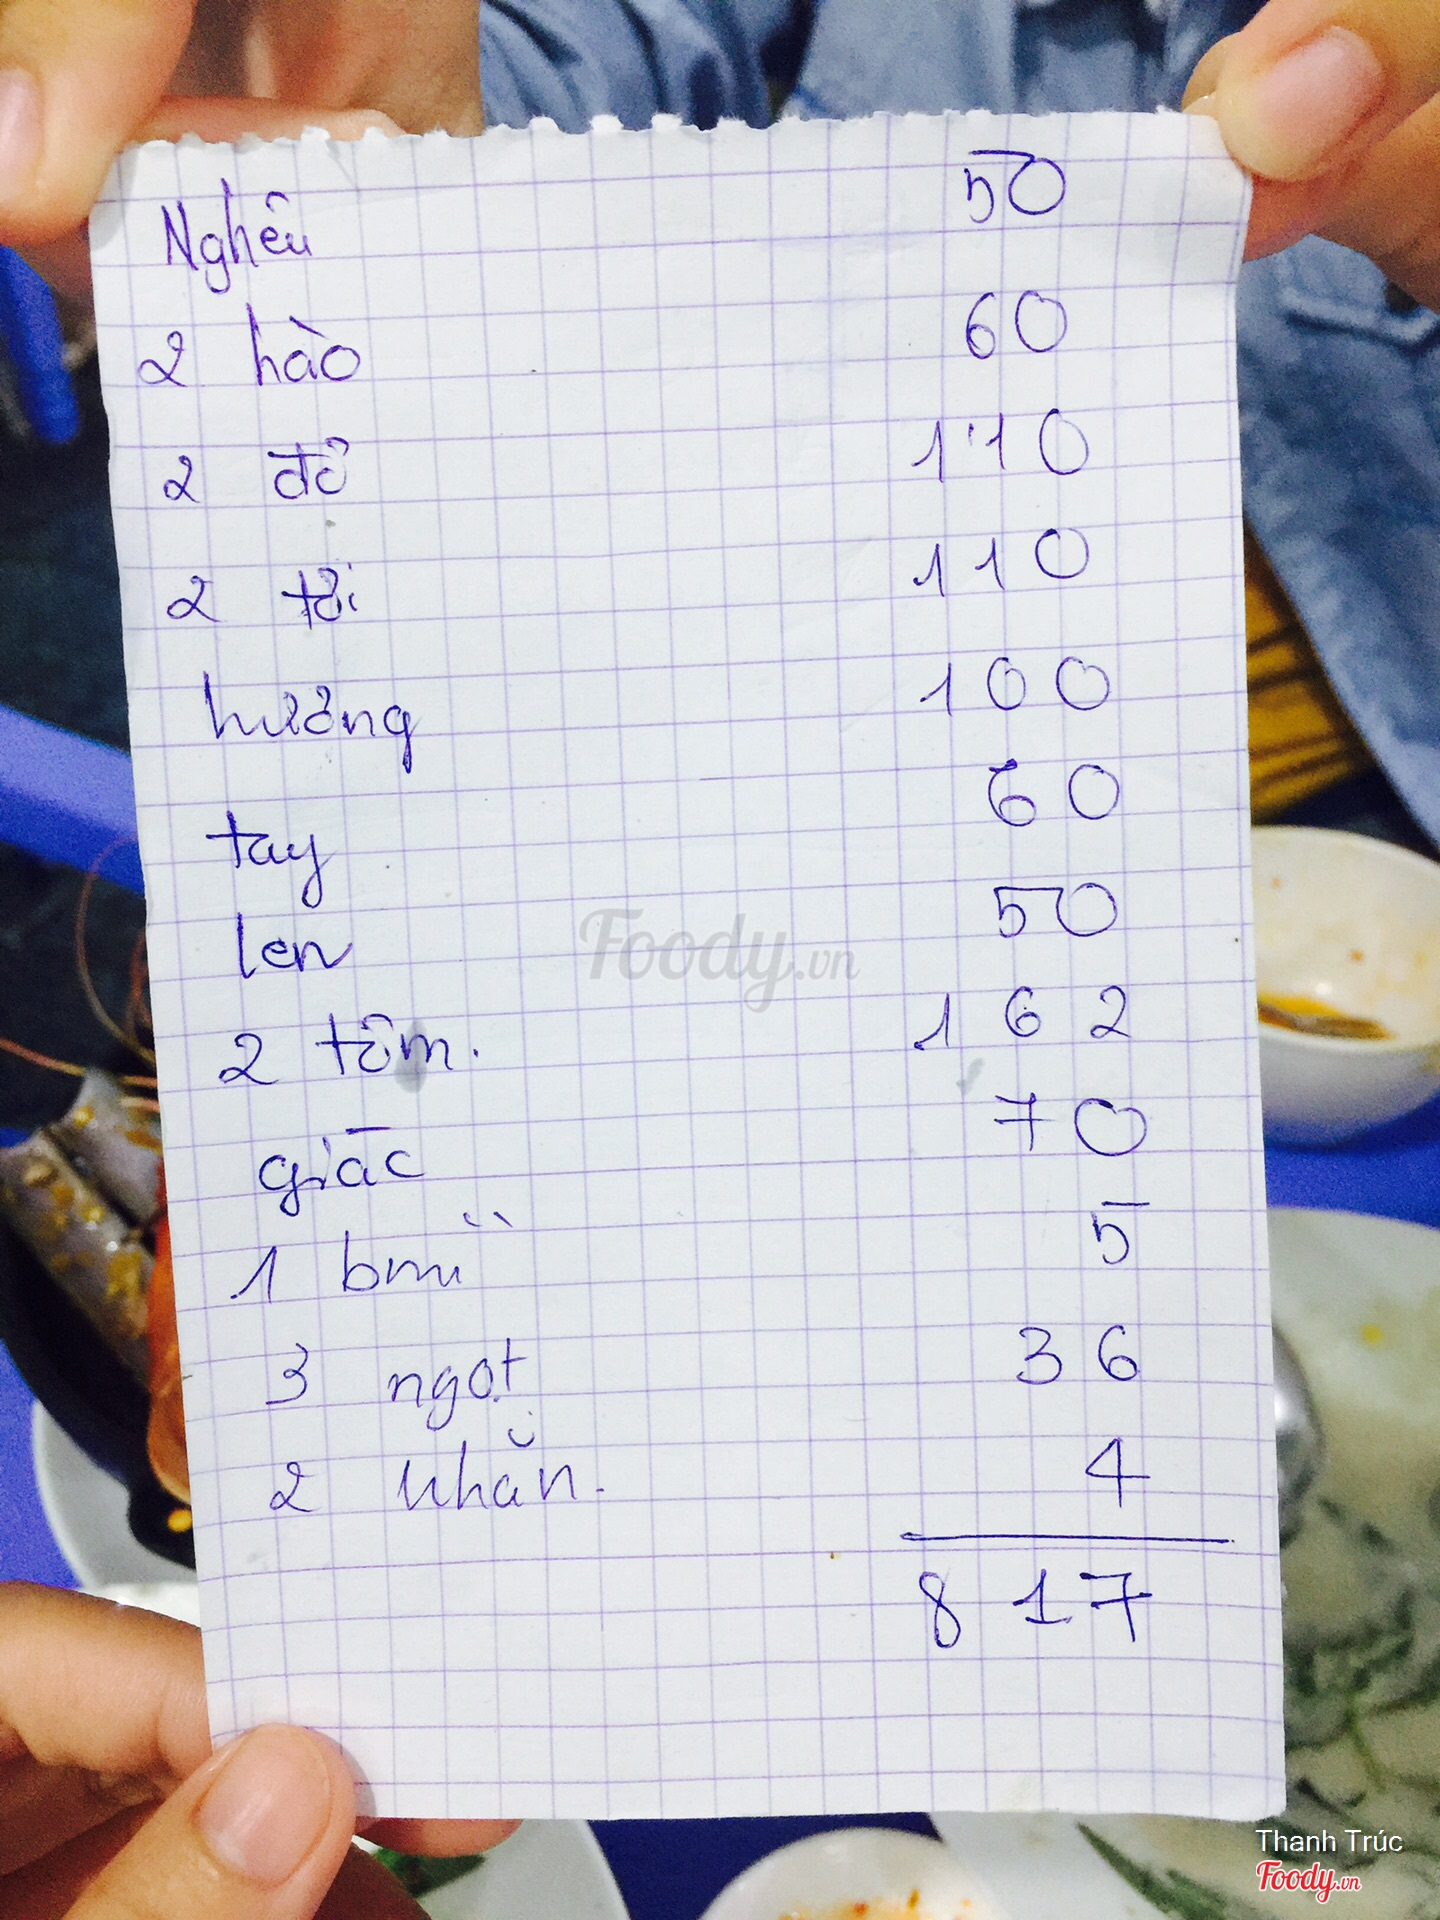 Nghêu 50
2 hào 60
2 đồ 110
2 tỏi 110
hương 100
tay 60
len 50
2 tôm. 162
giác 70
1 bmì 5
3 ngọt 36
2 nhăn. 4
817
Foody.vn
Thanh Trúc
Foody.vn